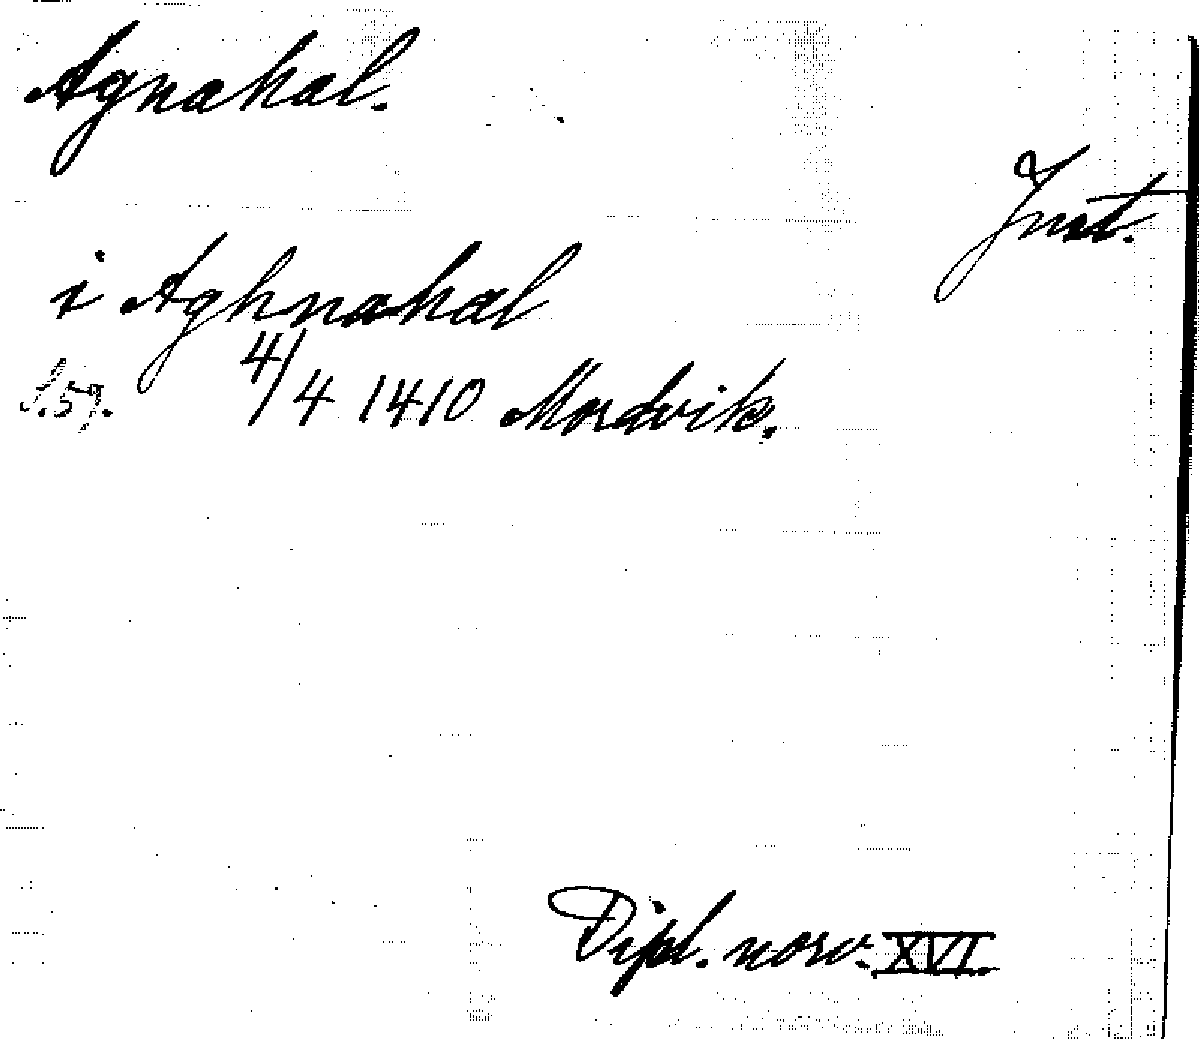 Agnahal.
Jnst.
i Aghnahal
S. 59. 4/4 1410 Mordvik.
Dipl. norv. XVI.